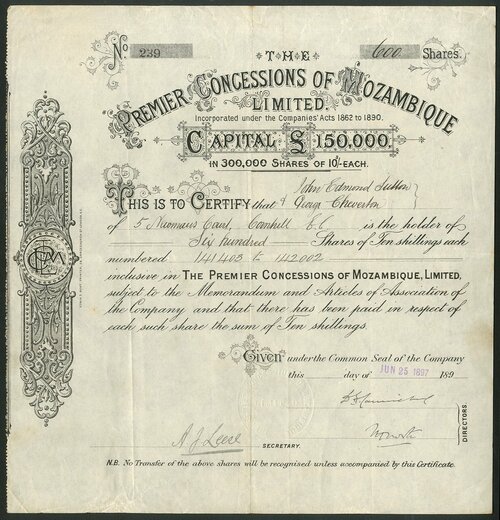 No 239 600 Shares.
THE
PREMIER CONCESSIONS OF MOZAMBIQUE
LIMITED.
Incorporated under the Companies' Acts 1862 to 1890.
CAPITAL £150,000.
IN 300,000 SHARES OF 10/- EACH.
THIS IS TO CERTIFY that John Edmond Sutton
& George Cheverton
of 5 Newmans Court, Cornhill E.C. is the holder of
Six hundred Shares of Ten shillings each
numbered 141403 to 142002
inclusive in THE PREMIER CONCESSIONS OF MOZAMBIQUE, LIMITED,
subject to the Memorandum and Articles of Association of
the Company and that there has been paid in respect of
each such share the sum of Ten shillings.
Given under the Common Seal of the Company
this day of JUN 25 1897 189
DIRECTORS
A. J. Leese
SECRETARY.
N.B. No Transfer of the above shares will be recognised unless accompanied by this Certificate.